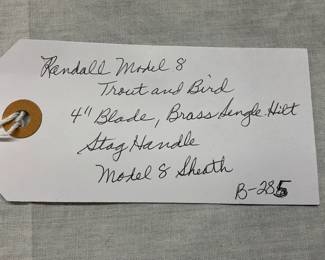 Randall Model 8
Trout and Bird
4" Blade, Brass Single Hilt
Stag Handle
Model 8 Sheath
B-285